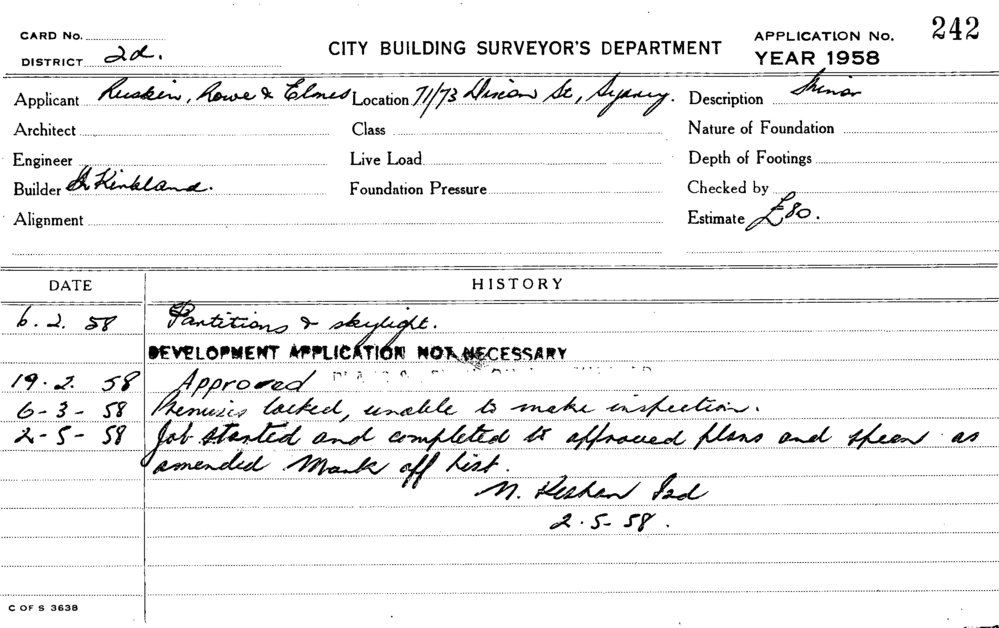 CARD No. CITY BUILDING SURVEYOR'S DEPARTMENT APPLICATION No. 242
DISTRICT 2d. YEAR 1958
Applicant Ruskin, Rowe & Elmes Location 71/73 Dixon St, Sydney. Description Minor
Architect Class Nature of Foundation
Engineer Live Load Depth of Footings
Builder Kirkland. Foundation Pressure Checked by
Alignment Estimate £80.
DATE HISTORY
6.2.58 Partitions & skylight.
DEVELOPMENT APPLICATION NOT NECESSARY
19.2.58 Approved
6-3-58 Premises locked, unable to make inspection.
2-5-58 Job started and completed to approved plans and specn as
amended Mark off list.
2.5-58.
C OF S 3638